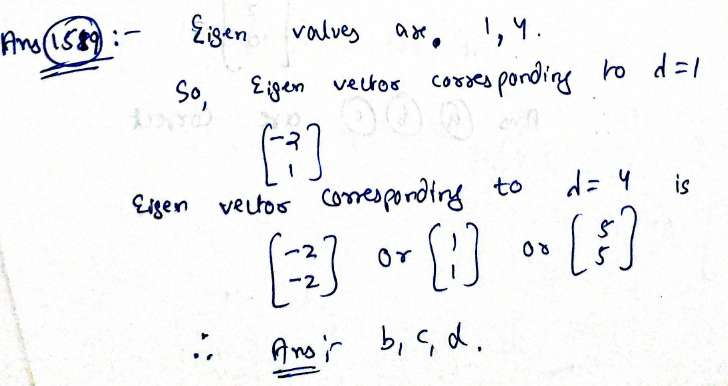 Ans (1589) :- Eigen values are, 1, 4.
So, Eigen vector corresponding to d=1
[-2
1]
Eigen vector corresponding to d= 4 is
[-2
-2] or [1
1] or [5
5]
∴ Ans :- b, c, d.